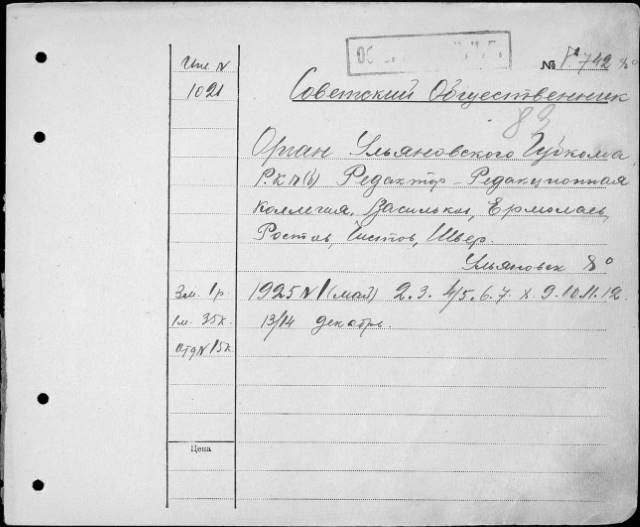 Инв. N
1021
№ 742 %
Советский Общественник
83
Орган Ульяновского Губкома
Р.К.П(б) Редактор - Редакционная
коллегия, Васильков, Ермолаев,
Ростов, Чистов, Швер.
Ульяновск 8°
3м. 1р.
1925 N 1 (май) 2. 3. 4/5. 6. 7. 8. 9. 10. 11. 12.
1м. 35к.
13/14 декабрь.
отд N 15к.
Цена